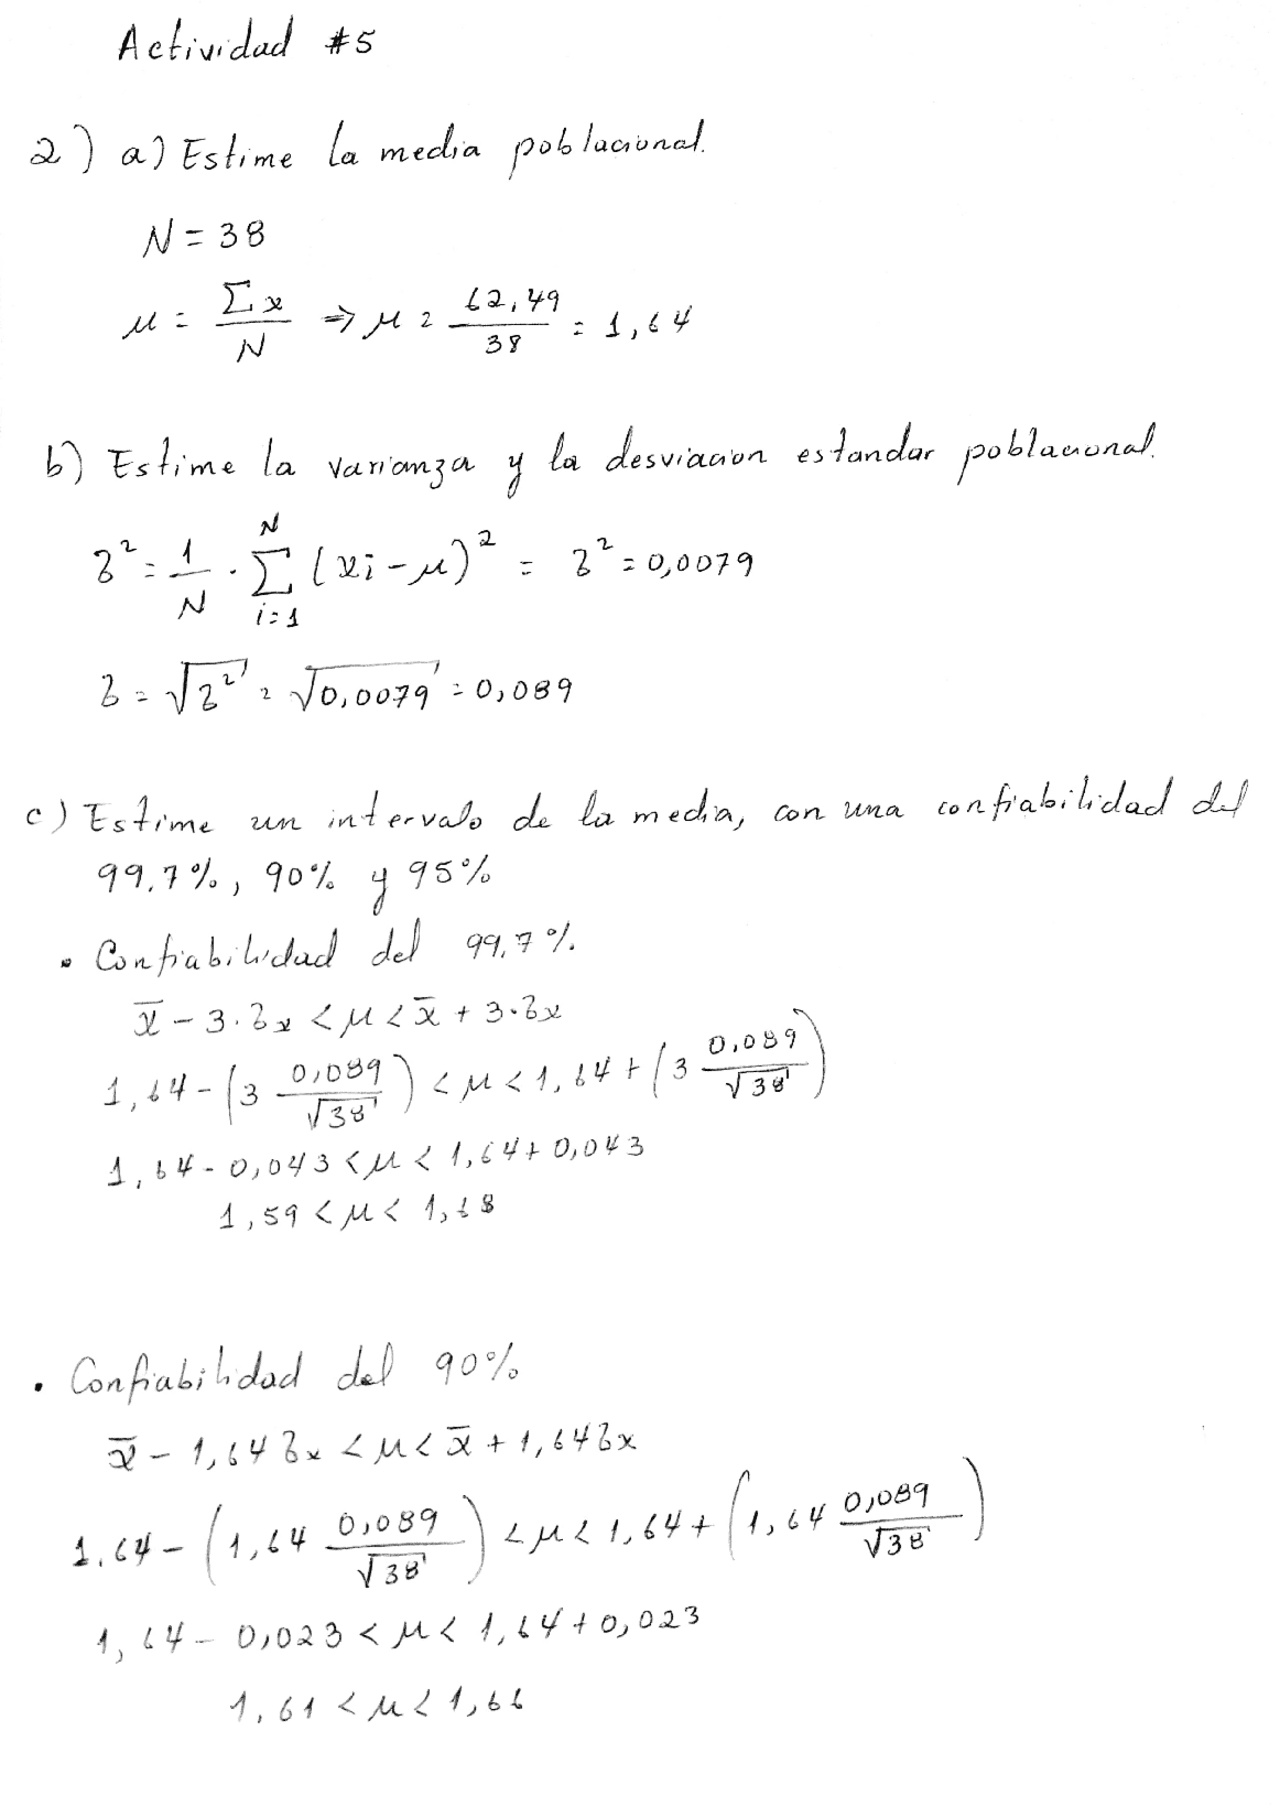 Actividad #5
2) a) Estime la media poblacional.
N = 38
μ = Σx / N ⇒ μ = 62,49 / 38 = 1,64
b) Estime la varianza y la desviacion estandar poblacional.
δ² = 1/N · Σ_{i=1}^{N} (xi - μ)² = δ² = 0,0079
δ = √δ² = √0,0079 = 0,089
c) Estime un intervalo de la media, con una confiabilidad del
99,7%, 90% y 95%
• Confiabilidad del 99,7%.
x̄ - 3·δx < μ < x̄ + 3·δx
1,64 - (3 0,089/√38) < μ < 1,64 + (3 0,089/√38)
1,64 - 0,043 < μ < 1,64 + 0,043
1,59 < μ < 1,68
• Confiabilidad del 90%
x̄ - 1,64 δx < μ < x̄ + 1,64 δx
1.64 - (1,64 0,089/√38) < μ < 1,64 + (1,64 0,089/√38)
1,64 - 0,023 < μ < 1,64 + 0,023
1,61 < μ < 1,66